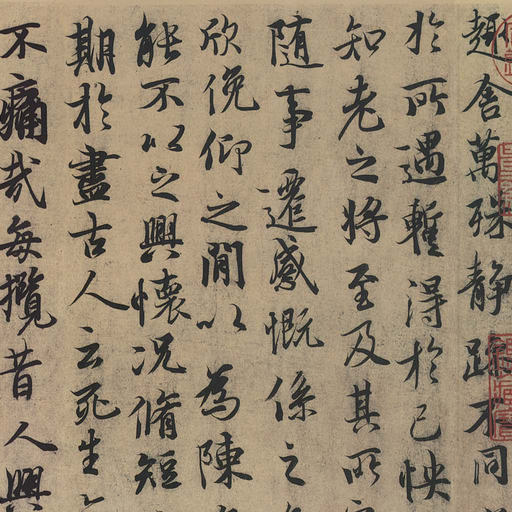 趣舍萬殊静躁不同
於所遇蹔得於己怏
知老之將至及其所
随事遷感慨係之
欣俛仰之閒以為陳
能不以之興懷况脩短
期於盡古人云死生
不痛哉每攬昔人興